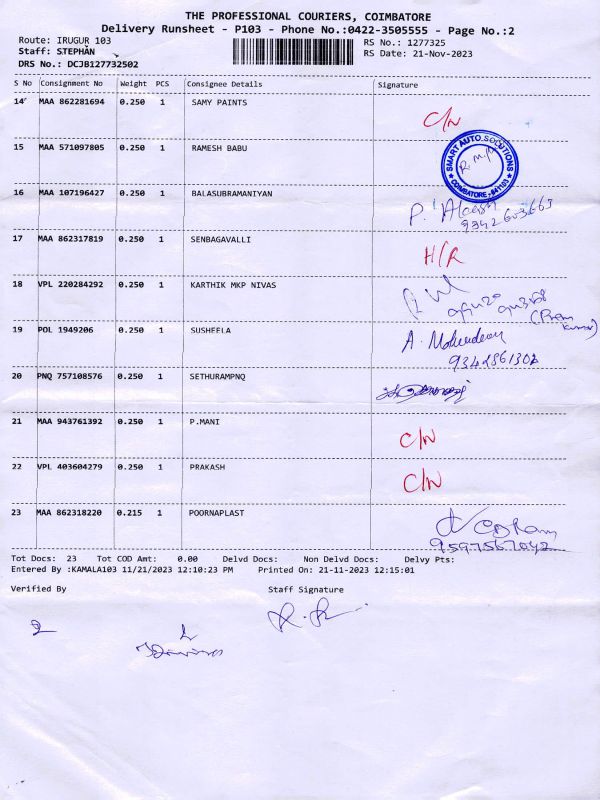 THE PROFESSIONAL COURIERS, COIMBATORE
Delivery Runsheet - P103 - Phone No.:0422-3505555 - Page No.:2
Route: IRUGUR 103
RS No.: 1277325
Staff: STEPHAN
RS Date: 21-Nov-2023
DRS No.: DCJB127732502
S No Consignment No Weight PCS Consignee Details Signature
14 MAA 862281694 0.250 1 SAMY PAINTS
C/N
15 MAA 571097805 0.250 1 RAMESH BABU
SMART AUTO SOLUTIONS
COIMBATORE - 641103
16 MAA 107196427 0.250 1 BALASUBRAMANIYAN
9342603663
17 MAA 862317819 0.250 1 SENBAGAVALLI
H/R
18 VPL 220284292 0.250 1 KARTHIK MKP NIVAS
(Prem
Kumar)
19 POL 1949206 0.250 1 SUSHEELA
A.
20 PNQ 757108576 0.250 1 SETHURAMPNQ
21 MAA 943761392 0.250 1 P.MANI
C/N
22 VPL 403604279 0.250 1 PRAKASH
C/N
23 MAA 862318220 0.215 1 POORNAPLAST
9597567042
Tot Docs: 23 Tot COD Amt: 0.00 Delvd Docs: Non Delvd Docs: Delvy Pts:
Entered By :KAMALA103 11/21/2023 12:10:23 PM Printed On: 21-11-2023 12:15:01
Verified By Staff Signature